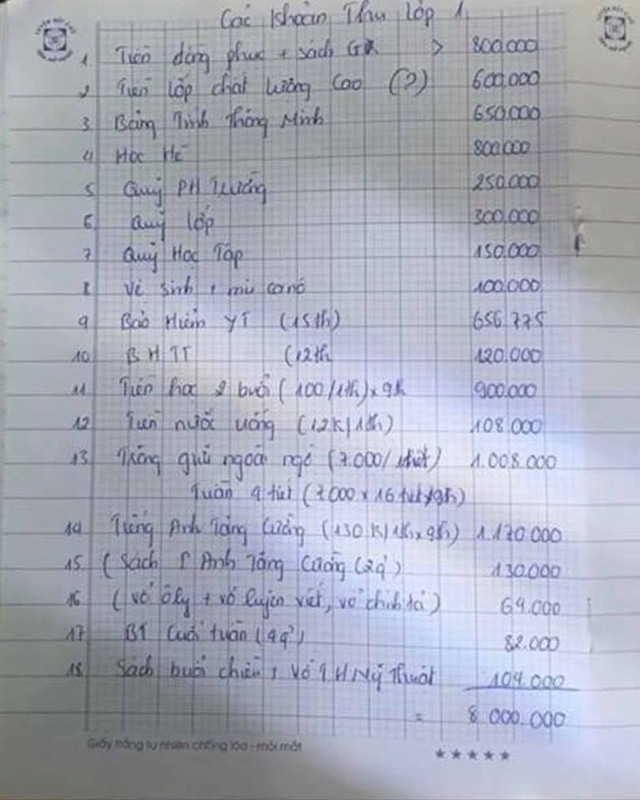 Các khoản Thu lớp 1
1 Tiền đồng phục + sách GK > 800.000
2 Tiền lớp chất lượng cao (?) 600.000
3 Bảng Tính Thông Minh 650.000
4 Học Hè 800.000
5 Quỹ PH Trường 250.000
6 Quỹ lớp 300.000
7 Quỹ Học Tập 150.000
8 Vệ sinh + mũ ca nô 100.000
9 Bảo Hiểm YT (15th) 656.775
10 BHTT (12th 120.000
11 Tiền học 2 buổi (100/1th) x 9th 900.000
12 Tiền nước uống (12K/1th) 108.000
13 Trông giữ ngoài ngờ (7.000/1tiết) 1.008.000
Tuần 4 tiết (7.000 x 16 tiết/9th)
14 Tiếng Anh Tăng Cường (130K/1th x 9th) 1.170.000
15 (Sách T Anh Tăng Cường (2q) 130.000
16 (vở ôly + vở luyện viết, vở chính tả) 69.000
17 BT Cuối tuần (4q) 82.000
18 Sách buổi chiều + Vở Mỹ Thuật 104.000
= 8.000.000
Giấy trắng tự nhiên chống lóa - mỏi mắt